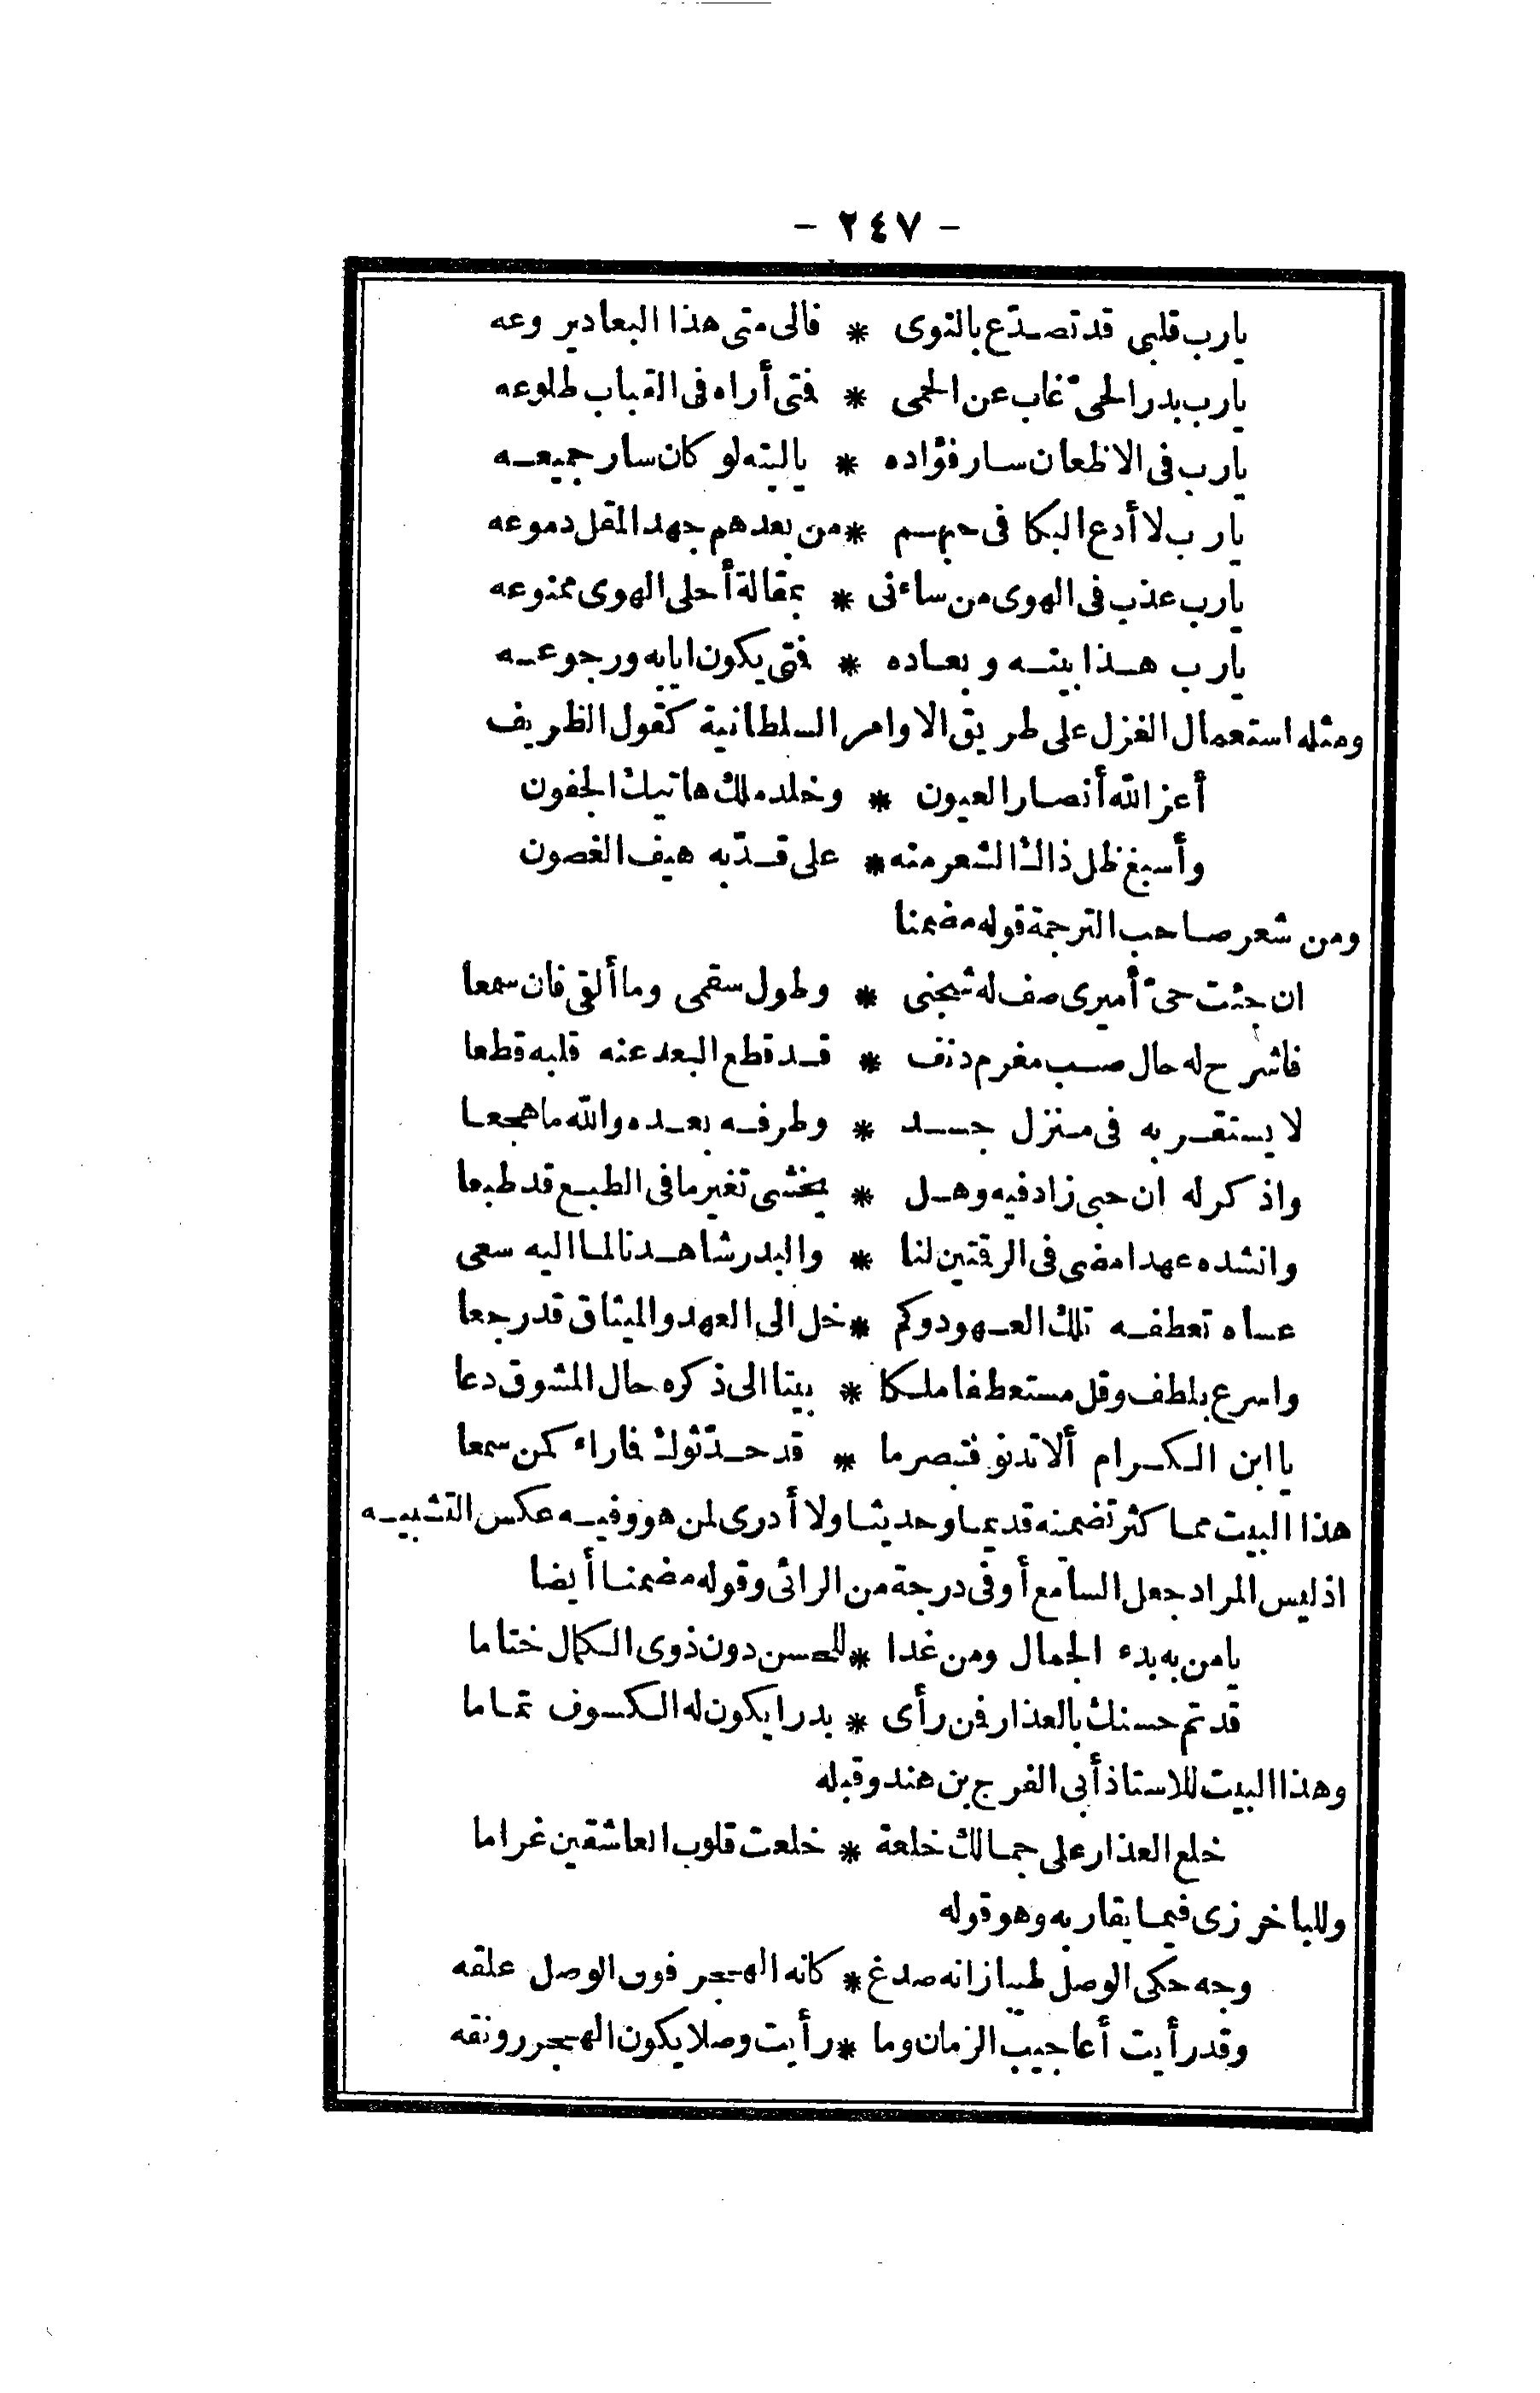 - ٢٤٧ -
يارب قلبى قد تصدّع بالنوى * فالى متى هذا البعاد يروعه
يارب بدر الحىّ غاب عن الحمى * فتى أراه فى القباب طلوعه
يارب فى الاظعان سار فؤاده * ياليته لو كان سار جميعه
يارب لا أدع البكا فى حبهم * من بعدهم جهد المقل دموعه
يارب عذب فى الهوى من ساءنى * بمقالة أحلى الهوى ممنوعه
يارب هذا بينه وبعاده * فتى يكون ايابه ورجوعه
ومثله استعمال الغزل على طريق الاوامر السلطانية كقول الظريف
أعز الله أنصار العيون * وخلد ملك هاتيك الجفون
وأسبغ ظل ذاك الشعر منه * على قدّ به هيف الغصون
ومن شعر صاحب الترجمة قوله مضمنا
ان جئت حىّ أميرى صف له شجنى * وطول سقمى وما ألقى فان سمعا
فاشرح له حال صب مغرم دنف * قد قطع البعد عنه قلبه قطعا
لا يستقر به فى منزل جسد * وطرفه بعده والله ما هجعا
واذكر له ان حبى زاد فيه وهل * يخشى تغير ما فى الطبع قد طبعا
وانشده عهدا مضى فى الرقتين لنا * والبدر شاهدنا لما اليه سعى
عساه تعطفه تلك العهود وكم * خل الى العهد والميثاق قد رجعا
واسرع بلطف وقل مستعطفا ملكا * بيتا الى ذكره حال المشوق دعا
يا ابن الكرام ألا تدنو فتبصر ما * قد حدّثوك فما راء كمن سمعا
هذا البيت مما كثر تضمينه قديما وحديثا ولا أدرى لمن هو وفيه عكس التشبيه
اذ ليس المراد جعل السامع أوفى درجة من الرائى وقوله مضمنا أيضا
يا من به بدء الجمال ومن غدا * للحسن دون ذوى الكمال ختاما
قد تم حسنك بالعذار فمن رأى * بدرا يكون له الكسوف تماما
وهذا البيت للاستاذ أبى الفرج بن هند وقبله
خلع العذار على جمالك خلعة * خلعت قلوب العاشقين غراما
وللباخرزى فيما يقاربه وهو قوله
وجه حكى الوصل طيبا زانه صدغ * كانه الهجر فوق الوصل علقه
وقد رأيت أعاجيب الزمان وما * رأيت وصلا يكون الهجر رونقه